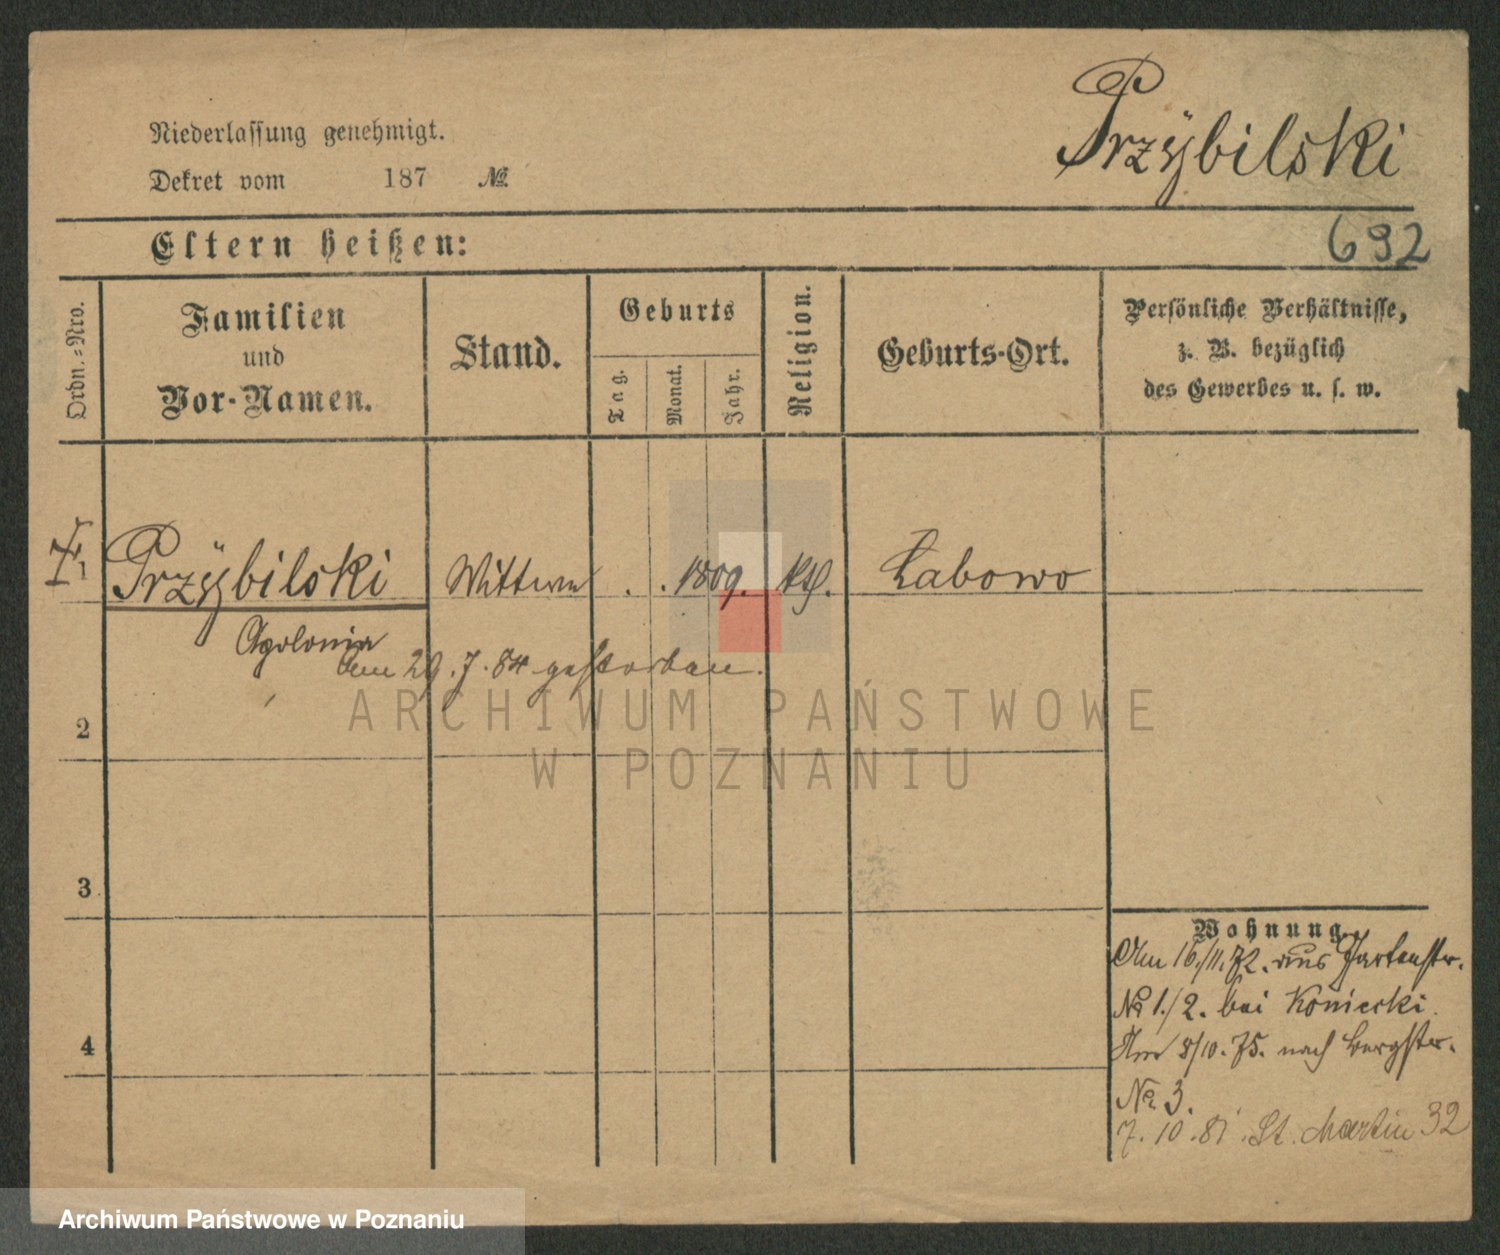 Przÿbilski
Niederlassung genehmigt.
Dekret vom 187 №
Eltern heißen:
692
Ordn.-Nro.
Familien
und
Vor-Namen.
Stand.
Geburts
Tag.
Monat.
Jahr.
Religion.
Geburts-Ort.
Persönliche Verhältnisse,
z. B. bezüglich
des Gewerbes u. s. w.
1 Przÿbilski Wittwe . . 1809. kth. Labowo
Apolonia
am 29.7.84 gestorben.
2
3
4
Wohnung.
Am 16/11.72. aus Gartenstr.
№ 1/2. bei Koniecki.
Am 8/10.75. nach Bergstr.
№ 3.
7.10.81. St. Martin 32
ARCHIWUM PAŃSTWOWE
W POZNANIU
Archiwum Państwowe w Poznaniu